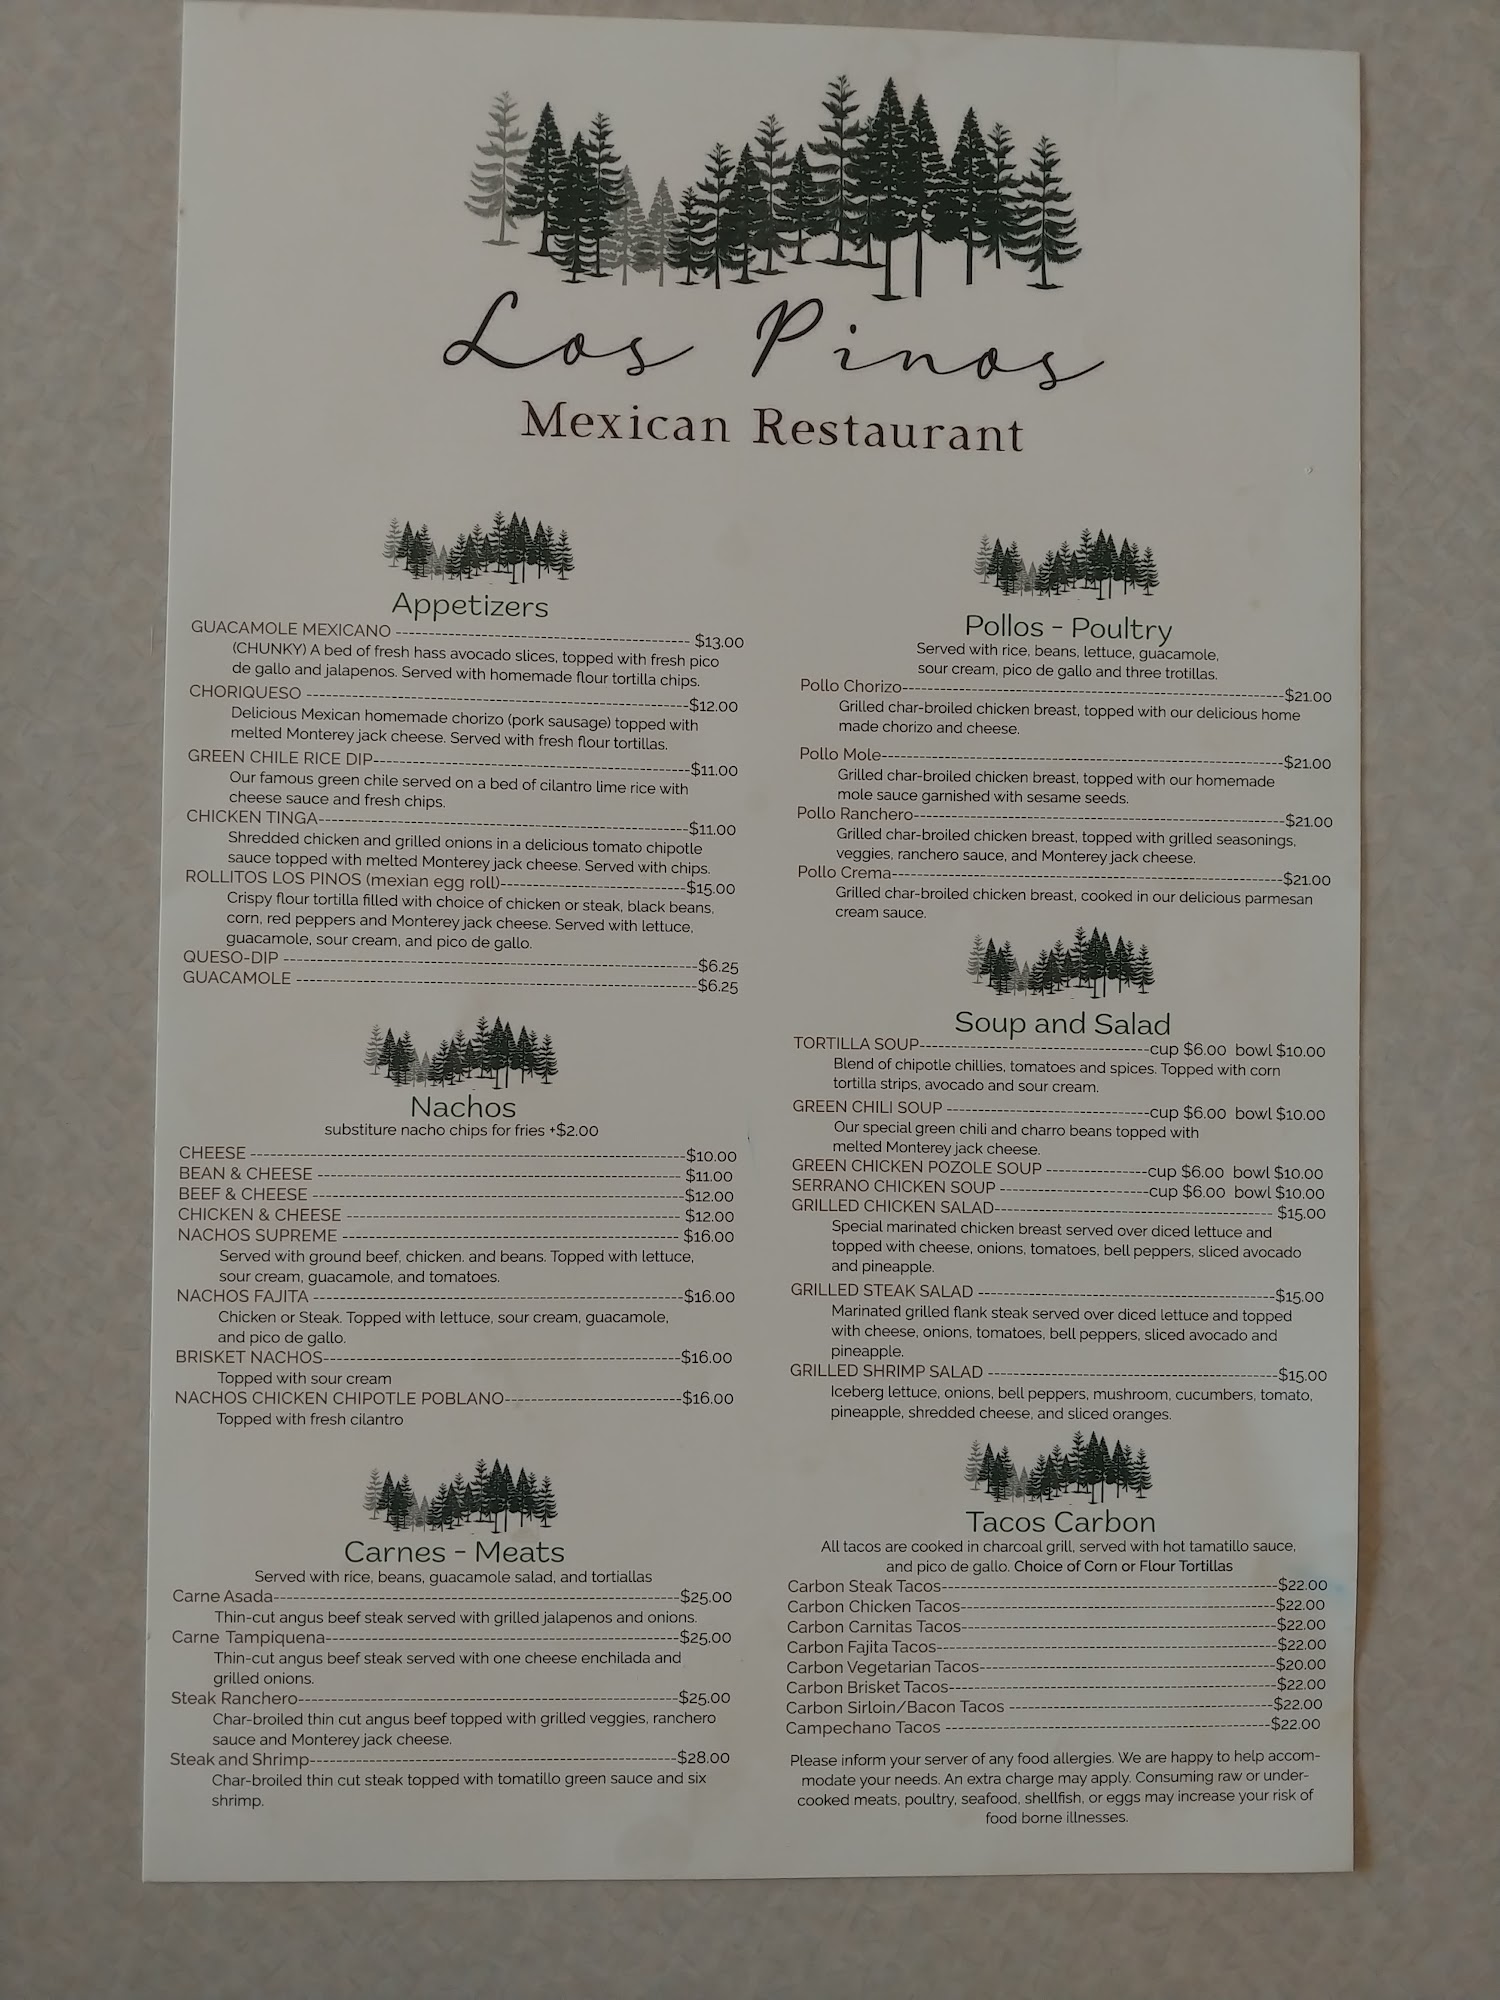 Los Pinos
Mexican Restaurant
Appetizers
GUACAMOLE MEXICANO ---------- $13.00
(CHUNKY) A bed of fresh hass avocado slices, topped with fresh pico
de gallo and jalapenos. Served with homemade flour tortilla chips.
CHORIQUESO ----------$12.00
Delicious Mexican homemade chorizo (pork sausage) topped with
melted Monterey jack cheese. Served with fresh flour tortillas.
GREEN CHILE RICE DIP----------$11.00
Our famous green chile served on a bed of cilantro lime rice with
cheese sauce and fresh chips.
CHICKEN TINGA----------$11.00
Shredded chicken and grilled onions in a delicious tomato chipotle
sauce topped with melted Monterey jack cheese. Served with chips.
ROLLITOS LOS PINOS (mexian egg roll)----------$15.00
Crispy flour tortilla filled with choice of chicken or steak, black beans,
corn, red peppers and Monterey jack cheese. Served with lettuce,
guacamole, sour cream, and pico de gallo.
QUESO-DIP ----------$6.25
GUACAMOLE ----------$6.25
Nachos
substiture nacho chips for fries +$2.00
CHEESE ----------$10.00
BEAN & CHEESE ---------- $11.00
BEEF & CHEESE ----------$12.00
CHICKEN & CHEESE ---------- $12.00
NACHOS SUPREME ---------- $16.00
Served with ground beef, chicken. and beans. Topped with lettuce,
sour cream, guacamole, and tomatoes.
NACHOS FAJITA ----------$16.00
Chicken or Steak. Topped with lettuce, sour cream, guacamole,
and pico de gallo.
BRISKET NACHOS----------$16.00
Topped with sour cream
NACHOS CHICKEN CHIPOTLE POBLANO----------$16.00
Topped with fresh cilantro
Carnes - Meats
Served with rice, beans, guacamole salad, and tortiallas
Carne Asada----------$25.00
Thin-cut angus beef steak served with grilled jalapenos and onions.
Carne Tampiquena----------$25.00
Thin-cut angus beef steak served with one cheese enchilada and
grilled onions.
Steak Ranchero----------$25.00
Char-broiled thin cut angus beef topped with grilled veggies, ranchero
sauce and Monterey jack cheese.
Steak and Shrimp----------$28.00
Char-broiled thin cut steak topped with tomatillo green sauce and six
shrimp.
Pollos - Poultry
Served with rice, beans, lettuce, guacamole,
sour cream, pico de gallo and three trotillas.
Pollo Chorizo----------$21.00
Grilled char-broiled chicken breast, topped with our delicious home
made chorizo and cheese.
Pollo Mole----------$21.00
Grilled char-broiled chicken breast, topped with our homemade
mole sauce garnished with sesame seeds.
Pollo Ranchero----------$21.00
Grilled char-broiled chicken breast, topped with grilled seasonings,
veggies, ranchero sauce, and Monterey jack cheese.
Pollo Crema----------$21.00
Grilled char-broiled chicken breast, cooked in our delicious parmesan
cream sauce.
Soup and Salad
TORTILLA SOUP----------cup $6.00 bowl $10.00
Blend of chipotle chillies, tomatoes and spices. Topped with corn
tortilla strips, avocado and sour cream.
GREEN CHILI SOUP ----------cup $6.00 bowl $10.00
Our special green chili and charro beans topped with
melted Monterey jack cheese.
GREEN CHICKEN POZOLE SOUP ----------cup $6.00 bowl $10.00
SERRANO CHICKEN SOUP ----------cup $6.00 bowl $10.00
GRILLED CHICKEN SALAD---------- $15.00
Special marinated chicken breast served over diced lettuce and
topped with cheese, onions, tomatoes, bell peppers, sliced avocado
and pineapple.
GRILLED STEAK SALAD ----------$15.00
Marinated grilled flank steak served over diced lettuce and topped
with cheese, onions, tomatoes, bell peppers, sliced avocado and
pineapple.
GRILLED SHRIMP SALAD ----------$15.00
Iceberg lettuce, onions, bell peppers, mushroom, cucumbers, tomato,
pineapple, shredded cheese, and sliced oranges.
Tacos Carbon
All tacos are cooked in charcoal grill, served with hot tamatillo sauce,
and pico de gallo. Choice of Corn or Flour Tortillas
Carbon Steak Tacos----------$22.00
Carbon Chicken Tacos----------$22.00
Carbon Carnitas Tacos----------$22.00
Carbon Fajita Tacos----------$22.00
Carbon Vegetarian Tacos----------$20.00
Carbon Brisket Tacos----------$22.00
Carbon Sirloin/Bacon Tacos ----------$22.00
Campechano Tacos ----------$22.00
Please inform your server of any food allergies. We are happy to help accom-
modate your needs. An extra charge may apply. Consuming raw or under-
cooked meats, poultry, seafood, shellfish, or eggs may increase your risk of
food borne illnesses.